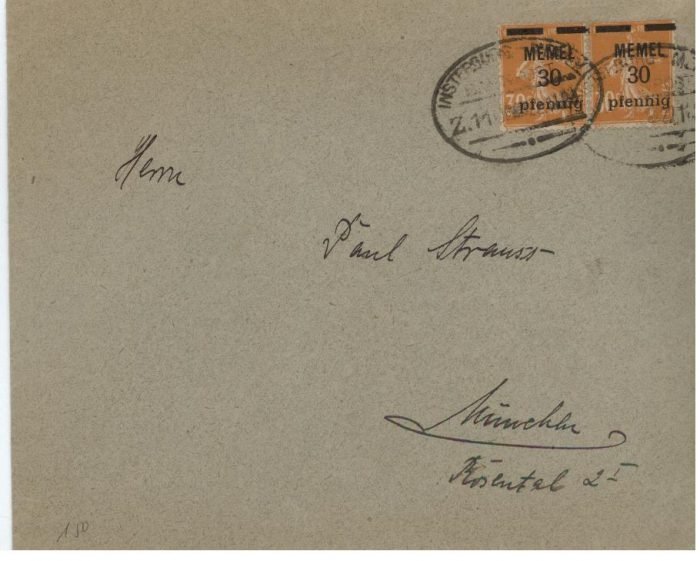 MEMEL MEMEL
30 30
pfennig pfennig
INSTERBURG
Z.11
Herrn
Paul Strauss
München
Rosental 2 I
150